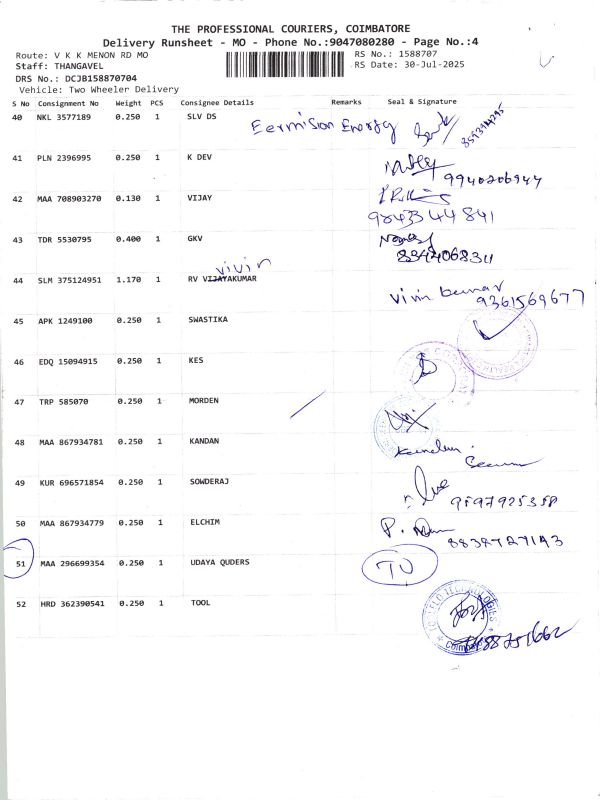 THE PROFESSIONAL COURIERS, COIMBATORE
Delivery Runsheet - MO - Phone No.:9047080280 - Page No.:4
Route: V K K MENON RD MO
RS No.: 1588707
Staff: THANGAVEL
RS Date: 30-Jul-2025
DRS No.: DCJB158870704
Vehicle: Two Wheeler Delivery
S No Consignment No Weight PCS Consignee Details Remarks Seal & Signature
40 NKL 3577189 0.250 1 SLV DS
Eermision Energy
41 PLN 2396995 0.250 1 K DEV
9940206944
42 MAA 708903270 0.130 1 VIJAY
9843344841
43 TDR 5530795 0.400 1 GKV
vivin
44 SLM 375124951 1.170 1 RV VIJAYAKUMAR
9361569677
45 APK 1249100 0.250 1 SWASTIKA
46 EDQ 15094915 0.250 1 KES
47 TRP 585070 0.250 1 MORDEN
48 MAA 867934781 0.250 1 KANDAN
49 KUR 696571854 0.250 1 SOWDERAJ
50 MAA 867934779 0.250 1 ELCHIM
51 MAA 296699354 0.250 1 UDAYA QUDERS
52 HRD 362390541 0.250 1 TOOL
Coimbatore